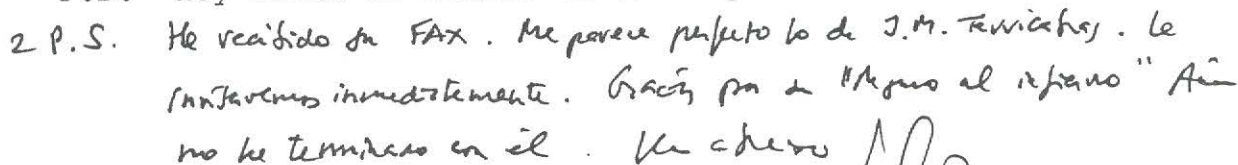 2 P.S. He recibido su FAX. Me parece perfecto lo de J.M. Terricabras. Le
invitaremos inmediatamente. Gracias por su "Regreso al infierno" Aún
no he terminado con él. Un abrazo